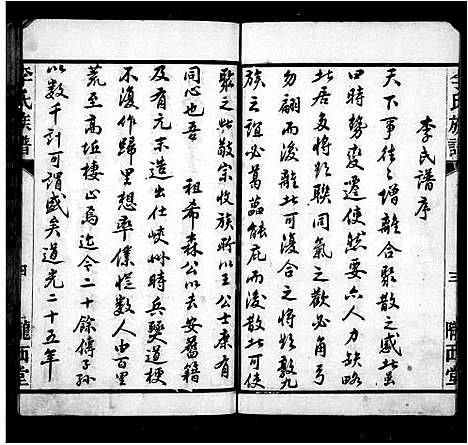 李氏族譜
三
隴西堂
李氏譜序
天下事往往增離合聚散之感此虽
曰時勢變遷使然要亦人力缺略
此居多將聯同氣之歡必角弓
勿翩而後離此可復合之將敦九
族之誼必葛藟能庇而後散此可使
聚之此敬宗收族所以王公士庶有
同心也吾 祖希森公以吉安舊籍
及有元末造出仕峽州時兵燹道梗
不復作歸里想率僕從数人由百里
荒至高坵棲止焉迄今二十餘傳子孫
以数千計可謂盛矣道光二十五年
李氏族譜
四
隴西堂